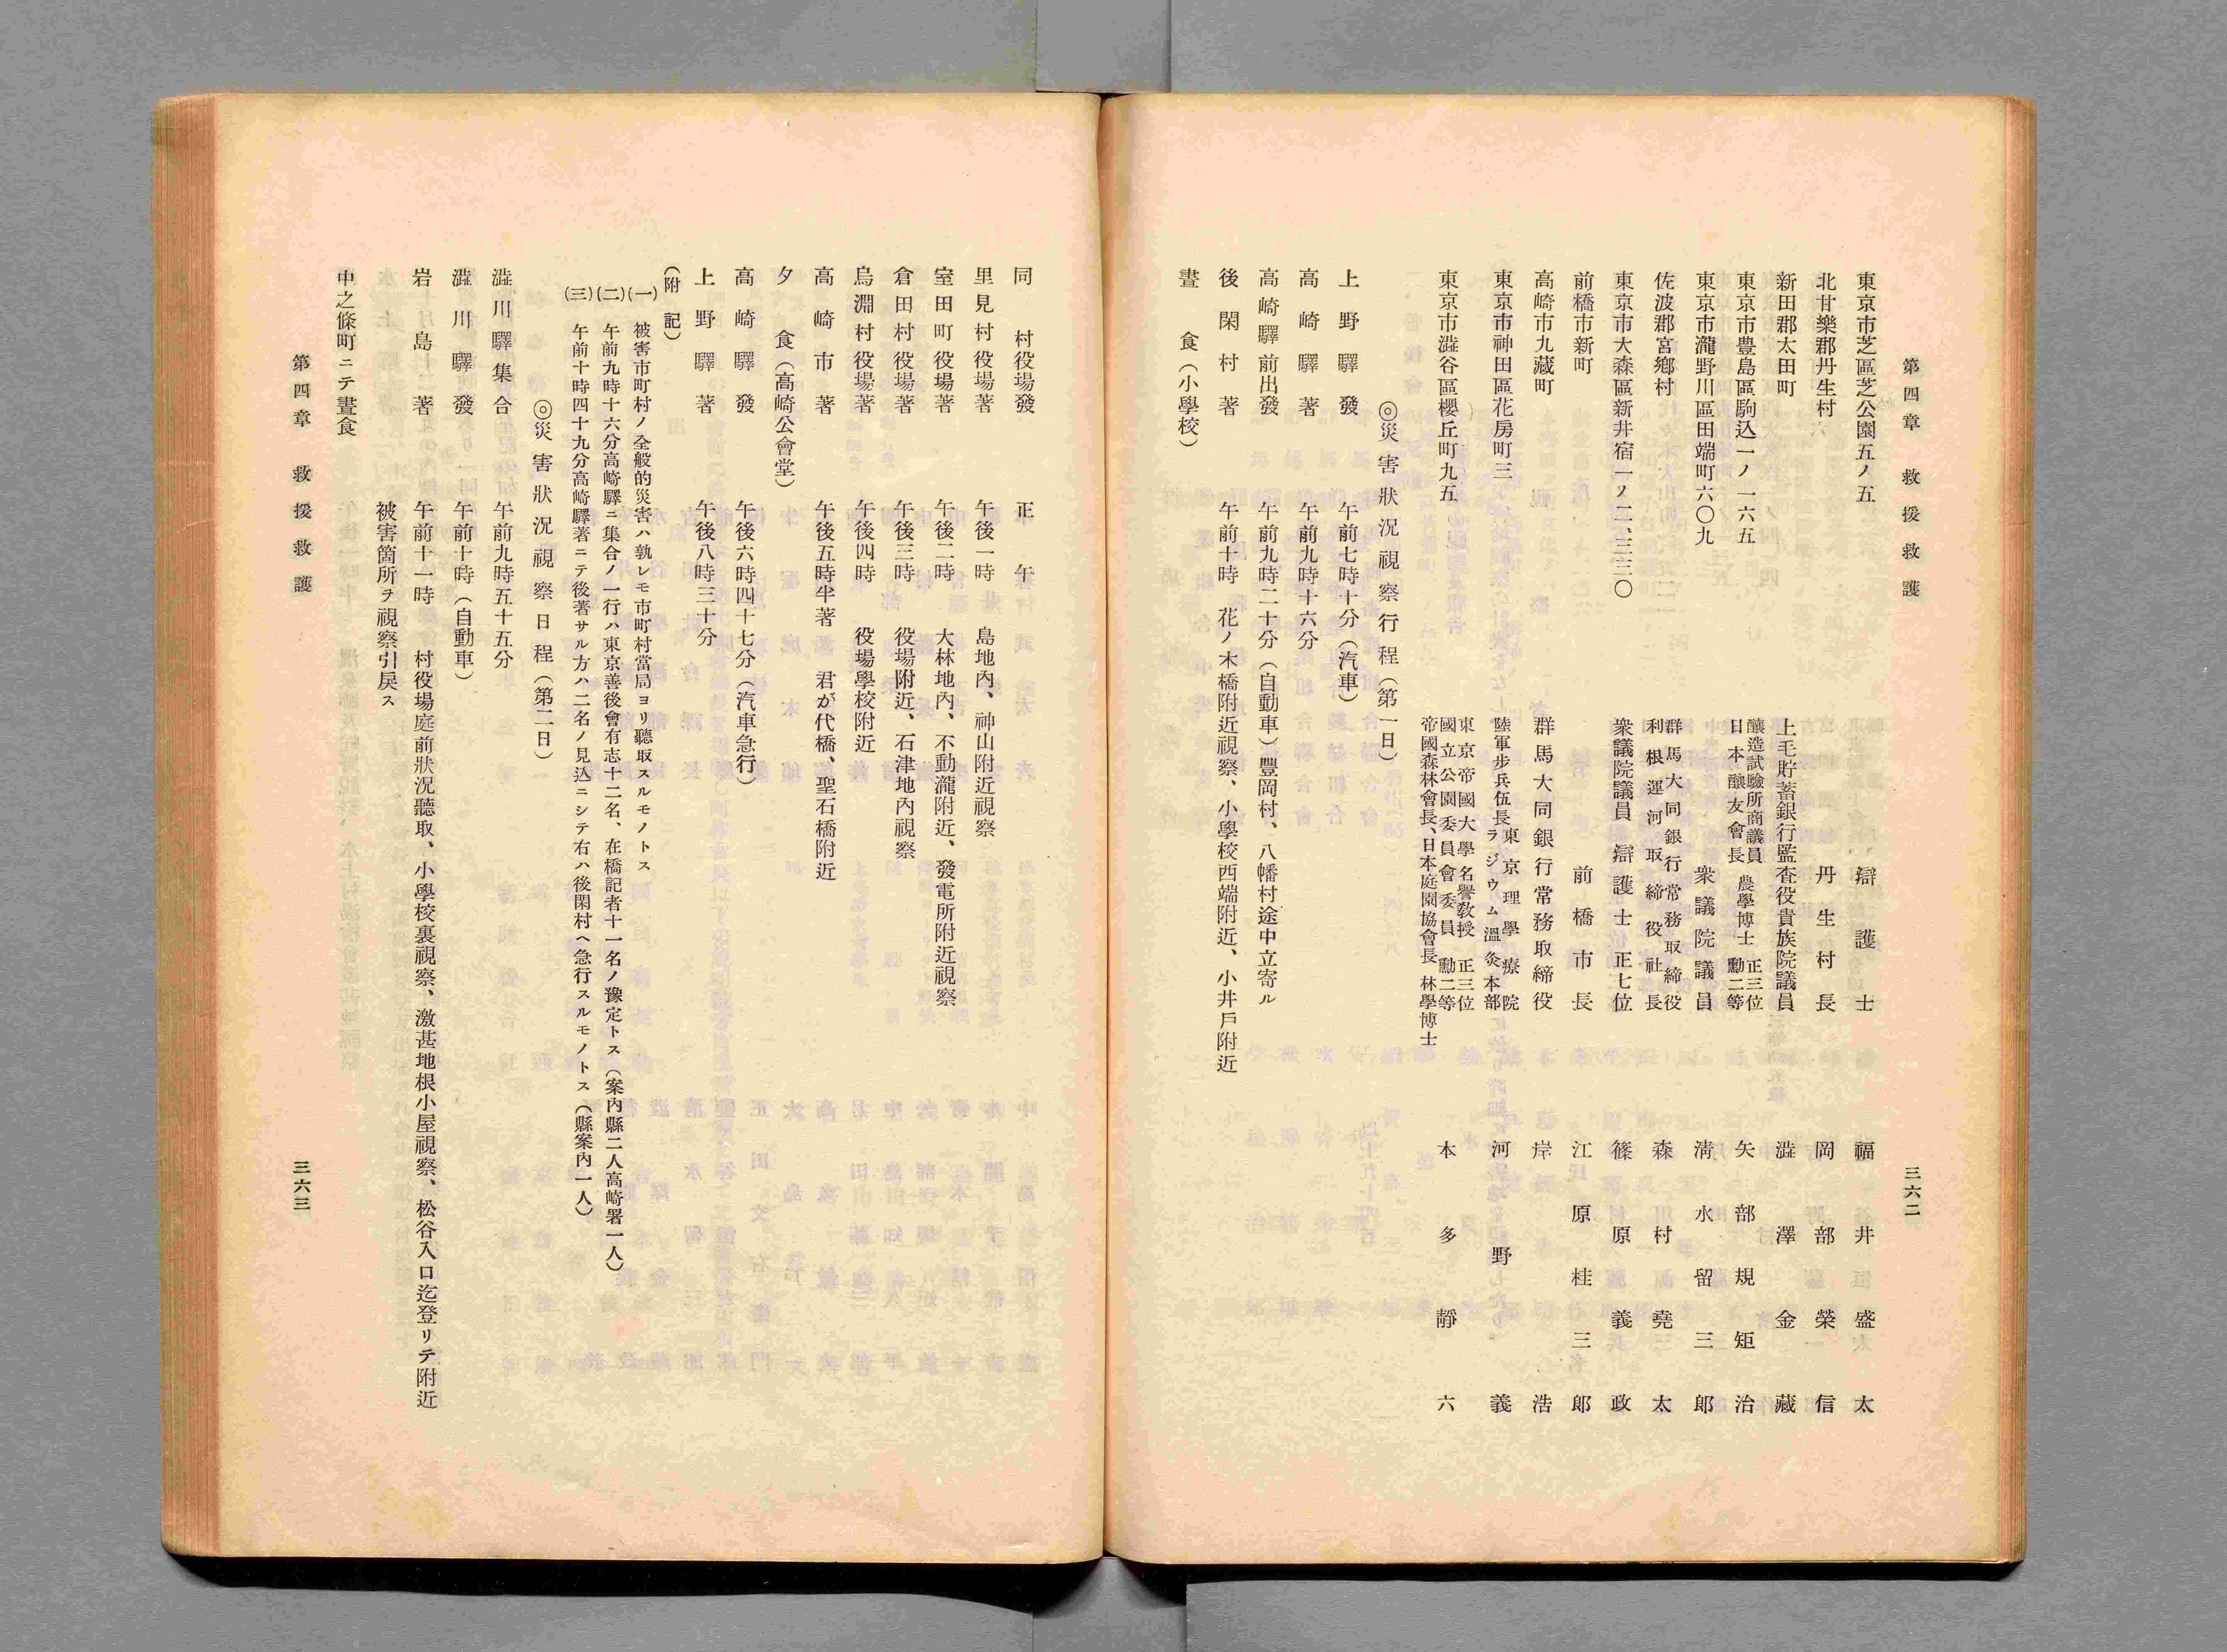 第四章 救援救護 三六二
東京市芝區芝公園五ノ五 辯護士 福井盛太
北甘樂郡丹生村 丹生村長 岡部榮信
新田郡太田町 上毛貯蓄銀行監査役貴族院議員 澁澤金藏
東京市豊島區駒込一ノ一六五 釀造試驗所商議員 日本釀友會長 農學博士 正三位 勳二等 矢部規矩治
東京市瀧野川區田端町六〇九 衆議院議員 清水留三郎
佐波郡宮郷村 群馬大同銀行常務取締役 利根運河取締役社長 森村堯太
東京市大森區新井宿一ノ二、三三〇 衆議院議員 辯護士 正七位 篠原義政
前橋市新町 前橋市長 江原桂三郎
高崎市九藏町 群馬大同銀行常務取締役 岸浩
東京市神田區花房町三 陸軍步兵伍長 東京理學療院 ラジウム溫灸本部 河野義
東京市澁谷區櫻丘町九五 東京帝國大學名譽敎授 正三位 國立公園委員會委員 勳二等 帝國森林會長、日本庭園協會長 林學博士 本多靜六
◎災害狀況視察行程（第一日）
上野驛發 午前七時十分（汽車）
高崎驛著 午前九時十六分
高崎驛前出發 午前九時二十分（自動車）豐岡村、八幡村途中立寄ル
後閑村著 午前十時 花ノ木橋附近視察、小學校西端附近、小井戶附近
晝食（小學校）
同村役場發 正午
里見村役場著 午後一時 島地內、神山附近視察
室田町役場著 午後二時 大林地內、不動瀧附近、發電所附近視察
倉田村役場著 午後三時 役場附近、石津地內視察
烏淵村役場著 午後四時 役場學校附近
高崎市著 午後五時半著 君が代橋、聖石橋附近
夕食（高崎公會堂）
高崎驛發 午後六時四十七分（汽車急行）
上野驛著 午後八時三十分
（附記）
（一） 被害市町村ノ全般的災害ハ孰レモ市町村當局ヨリ聽取スルモノトス
（二） 午前九時十六分高崎驛ニ集合ノ一行ハ東京善後會有志十二名、在橋記者十一名ノ豫定トス（案內縣二人高崎署一人）
（三） 午前十時四十九分高崎驛著ニテ後著サル方ハ二名ノ見込ニシテ右ハ後閑村ヘ急行スルモノトス（縣案內一人）
◎災害狀況視察日程（第二日）
澁川驛集合 午前九時五十五分
澁川驛發 午前十時（自動車）
岩島著 午前十一時 村役場庭前狀況聽取、小學校裏視察、激甚地根小屋視察、松谷入口迄登リテ附近
被害箇所ヲ視察引戾ス
中之條町ニテ晝食
第四章 救援救護 三六三